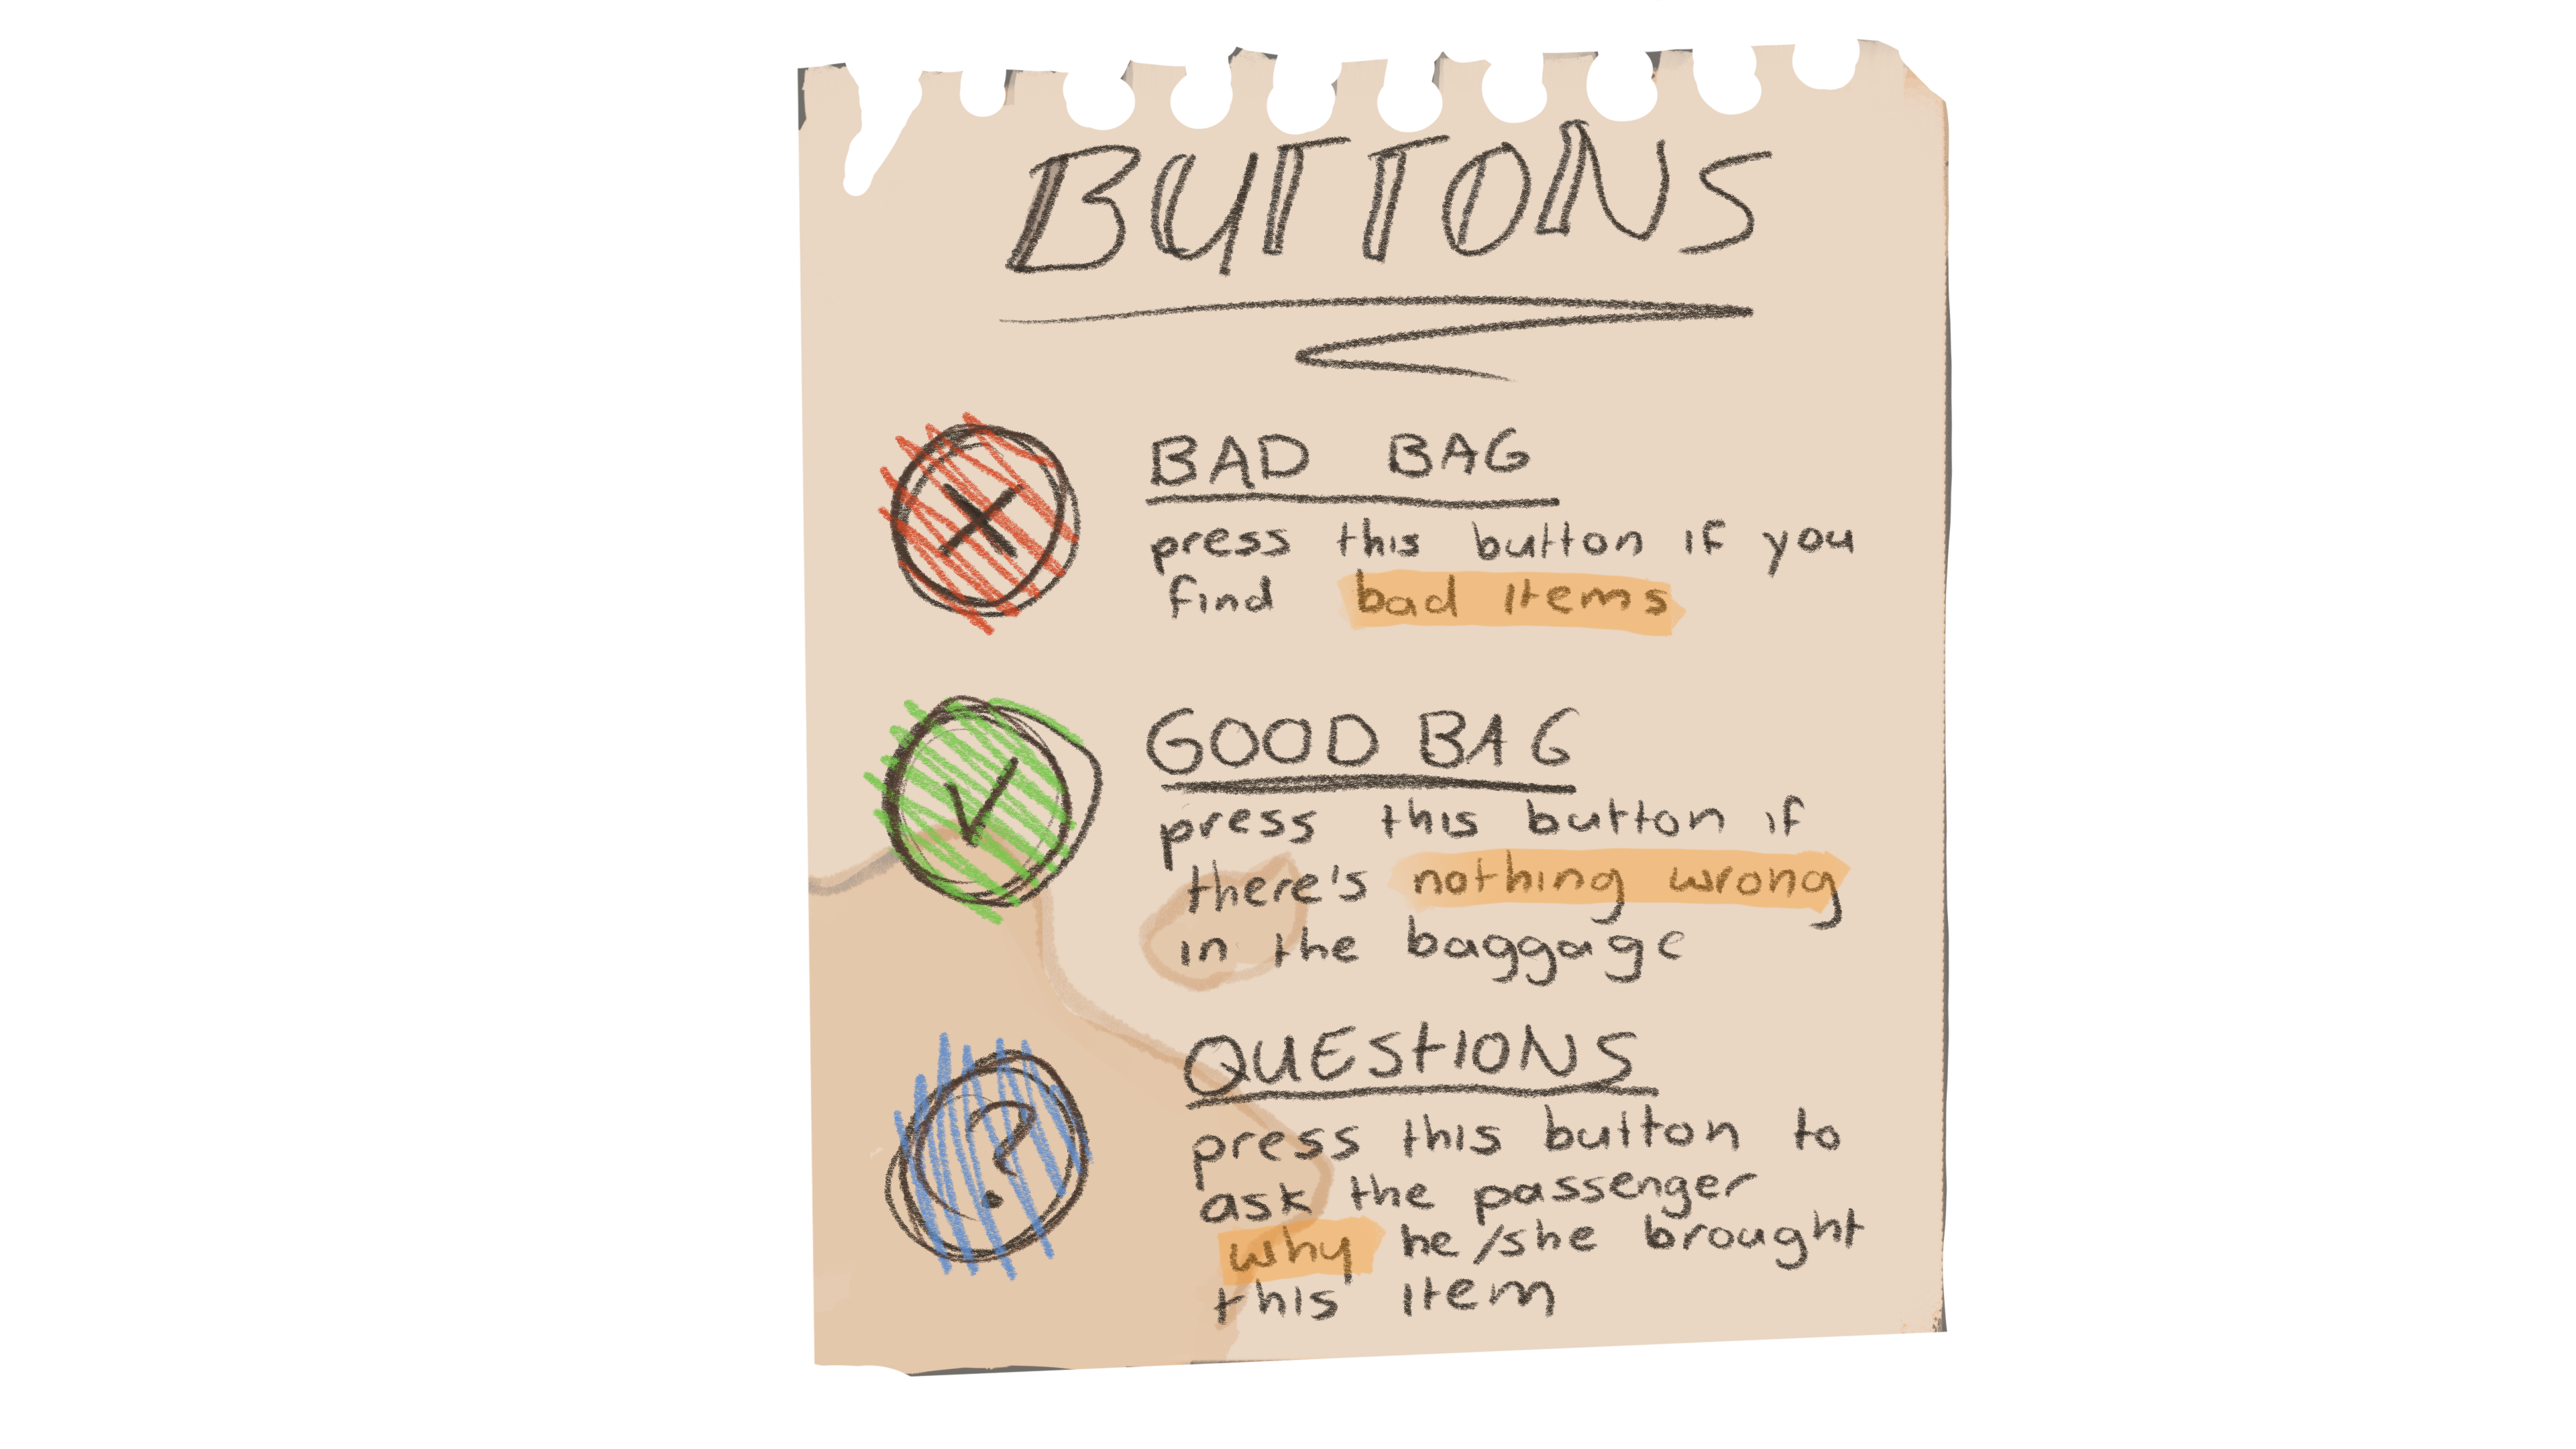 BUTTONS
BAD BAG
press this button if you
find bad items
GOOD BAG
press this button if
there's nothing wrong
in the baggage
QUESTIONS
?
press this button to
ask the passenger
why he/she brought
this item